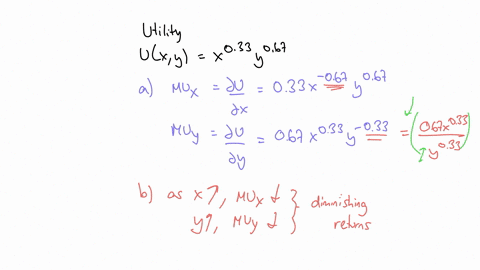 Utility
U(x,y) = x^0.33 y^0.67
a) MUx = ∂U/∂x = 0.33x^-0.67 y^0.67
MUy = ∂U/∂y = 0.67 x^0.33 y^-0.33 = (0.67x^0.33 / y^0.33)
b) as x↑, MUx ↓ } diminishing
y↑, MUy ↓ } returns